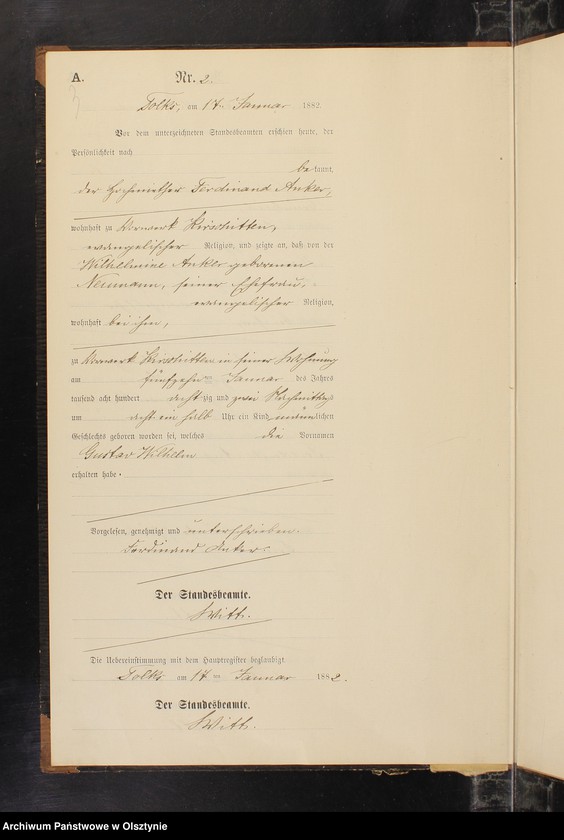 A.
Nr. 2.
3
Tolks, am 17ten Januar 1882.
Vor dem unterzeichneten Standesbeamten erschien heute, der
Persönlichkeit nach
bekannt,
der Hofmann Ferdinand Anker,
wohnhaft zu Vorwerk
evangelischer Religion, und zeigte an, daß von der
Wilhelmine Anker geborenen
Neumann, seiner Ehefrau,
evangelischer Religion,
wohnhaft bei ihm,
zu Vorwerk in seiner Wohnung
am fünfzehnten Januar des Jahres
tausend acht hundert achtzig und zwei Nachmittags
um acht ein halb Uhr ein Kind männlichen
Geschlechts geboren worden sei, welches die Vornamen
Gustav Wilhelm
erhalten habe.
Vorgelesen, genehmigt und unterschrieben.
Ferdinand Anker.
Der Standesbeamte.
Witt.
Die Uebereinstimmung mit dem Hauptregister beglaubigt.
Tolks am 17ten Januar 1882.
Der Standesbeamte.
Witt.
Archiwum Państwowe w Olsztynie